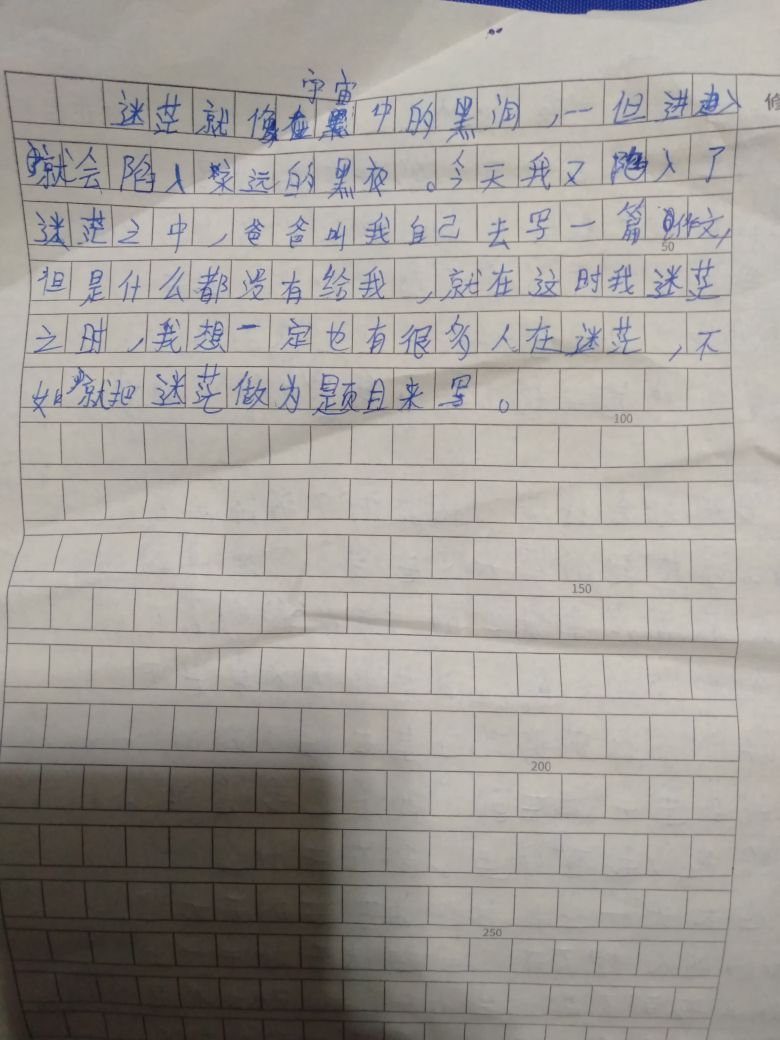 宇宙
迷茫就像在中的黑洞，一但进入
就会陷入永远的黑夜。今天我又陷入了
迷茫之中，爸爸叫我自己去写一篇作文，
50
但是什么都没有给我，就在这时我迷茫
之时，我想一定也有很多人在迷茫，不
如就把迷茫做为题目来写。
100
150
200
250